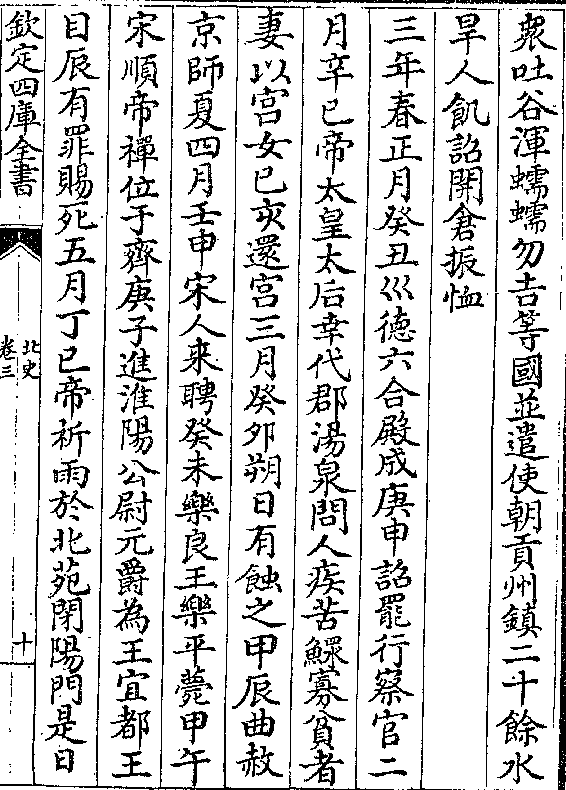 衆吐谷渾蠕蠕勿吉等國並遣使朝貢州鎮二十餘水
旱人飢詔開倉振恤
三年春正月癸丑巛德六合殿成庚申詔罷行察官二
月辛巳帝太皇太后幸代郡湯泉問人疾苦鰥寡貧者
妻以宮女已亥還宮三月癸夘朔日有蝕之甲辰曲赦
京師夏四月壬申宋人来聘癸未樂良王樂平薨甲午
宋順帝禪位于齊庚子進淮陽公尉元爵為王宜都王
目辰有罪賜死五月丁巳帝祈雨於北苑閉陽門是日
欽定四庫全書
北史
卷三
十